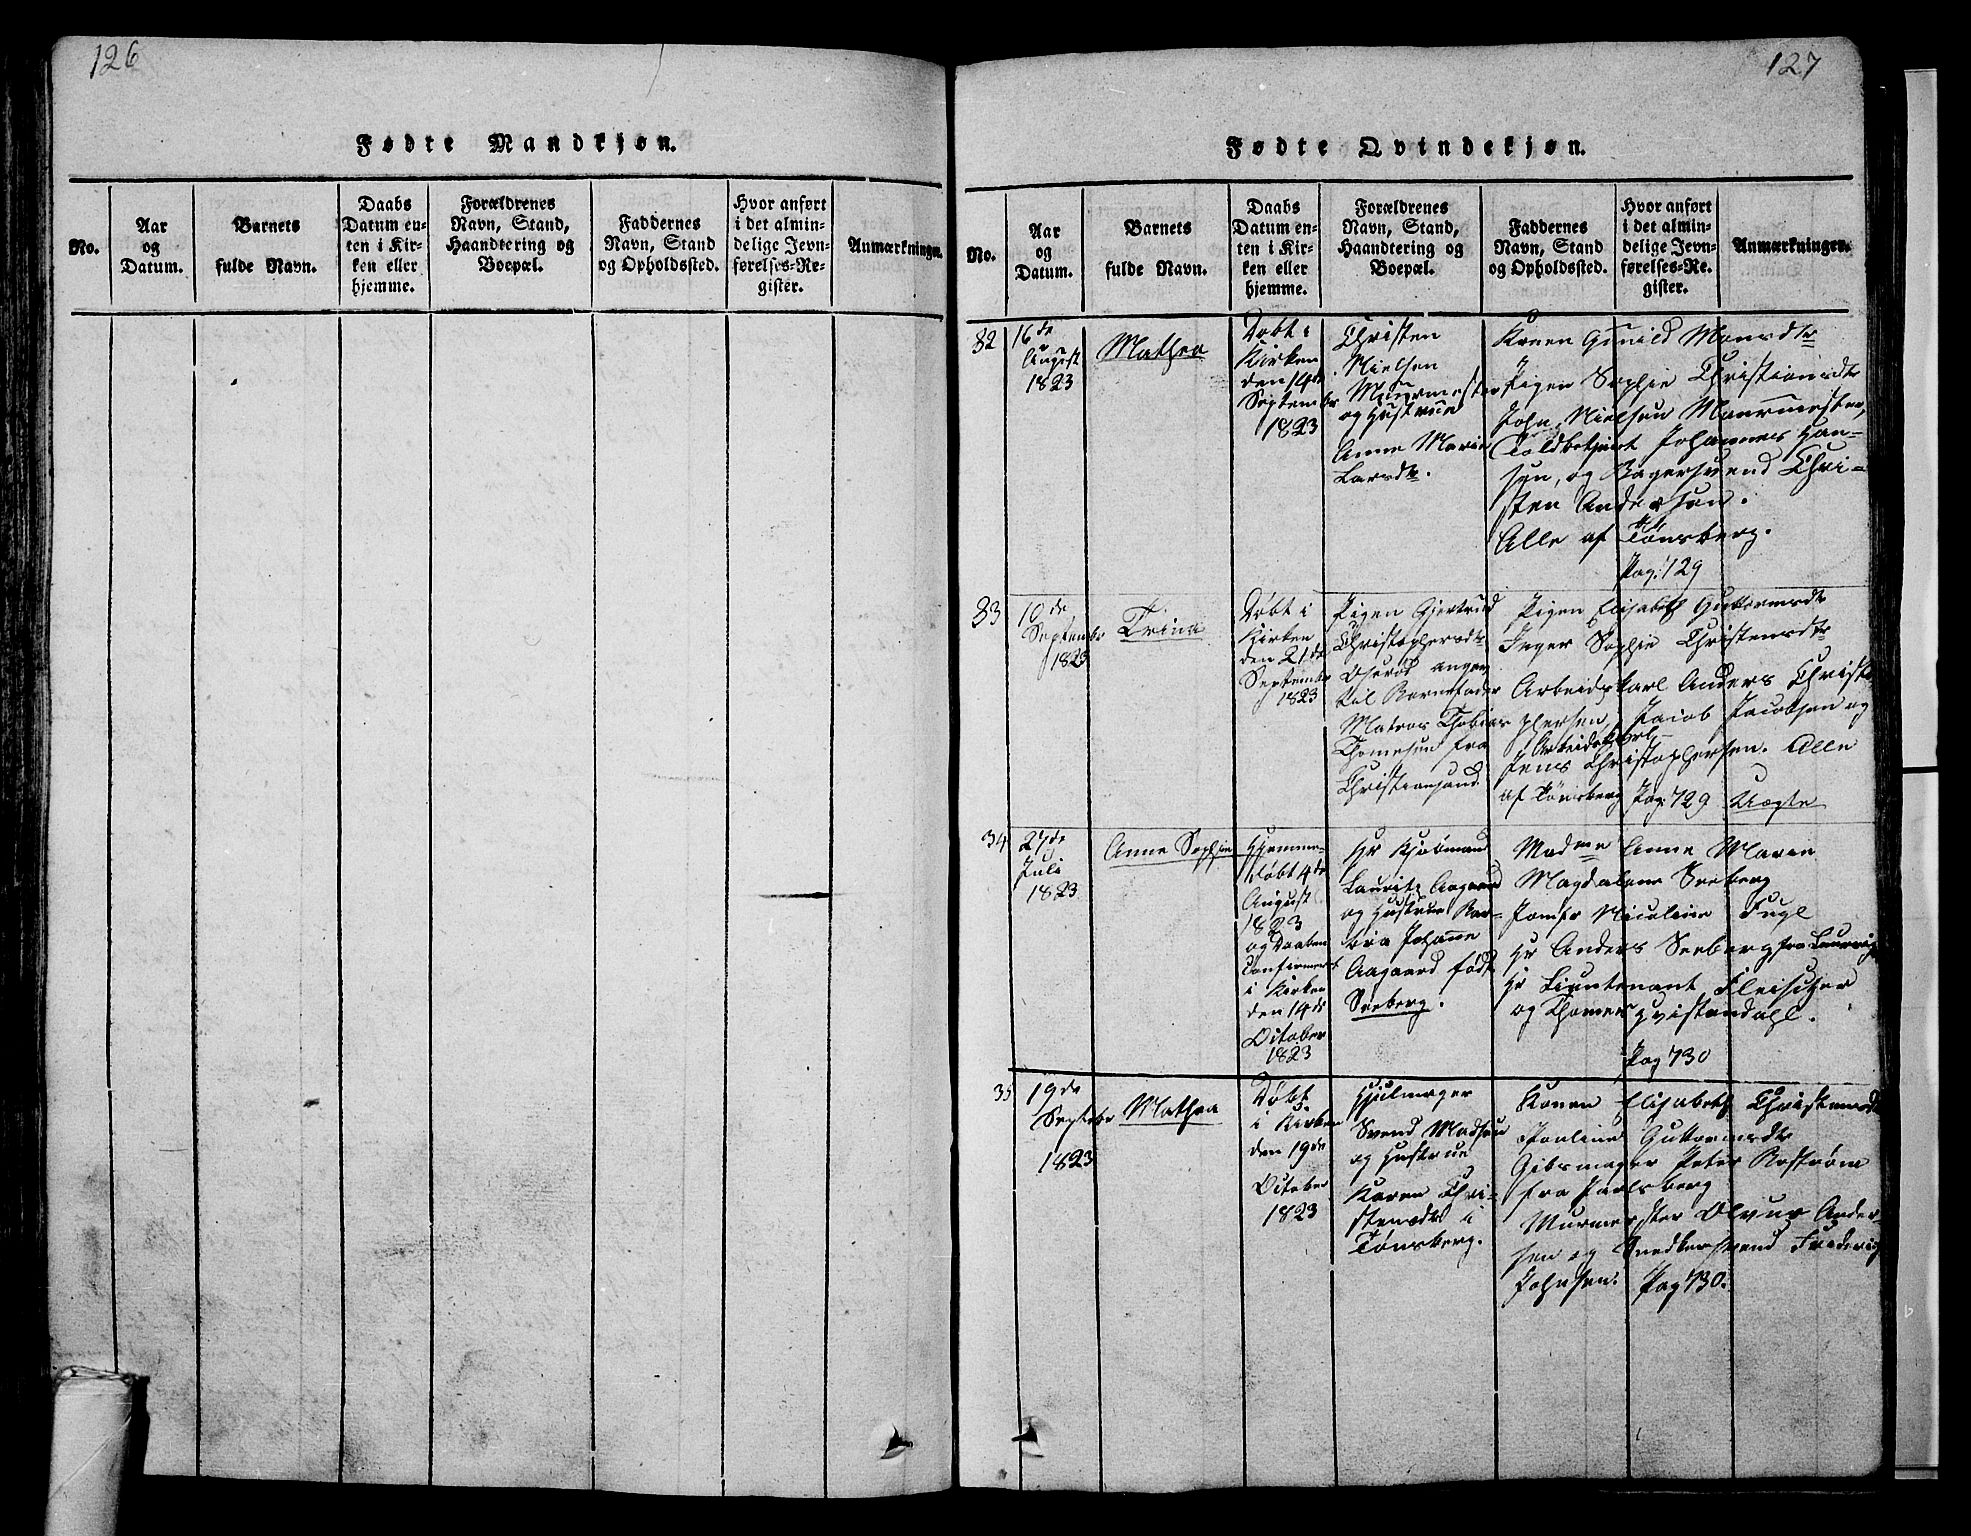 126
Fødte Mandkjøn.
No.
Aar
og
Datum.
Barnets
fulde Navn.
Daabs
Datum en-
ten i Kir-
ken eller
hjemme.
Forældrenes
Navn, Stand,
Haandtering og
Boepæl.
Faddernes
Navn, Stand
og Opholdssted.
Hvor anført
i det almin-
delige Jevn-
førelses-Re-
gister.
Anmærkninger.
127
Fødte Qvindekjøn.
No.
Aar
og
Datum.
Barnets
fulde Navn.
Daabs
Datum en-
ten i Kir-
ken eller
hjemme.
Forældrenes
Navn, Stand,
Haandtering og
Boepæl.
Faddernes
Navn, Stand
og Opholdssted.
Hvor anført
i det almin-
delige Jevn-
førelses-Re-
gister.
Anmærkninger.
32
16de
August
1823
Mathea
Døbt i
Kirken
den 14de
Septembr
1823
Christen
Nielsen
Muurmester
og Hustrue
Anne Marie
Larsdtr.
Konen Gunild Monsdtr
Pigen Sophie Christiansdtr
John Nielsen Muurmester,
Toldbetjent Johannes Han-
sen, og Bagersvend Chri-
sten Andersen.
Alle af Tønsberg.
Pag: 129
33
10de
Septembr
1823
Trina
Døbt i
Kirken
den 21de
Septembr
1823
Pigen Gjertrud
Christophersdtr
angav
til Barnefader
Matros Thobias
Thomesen fra
Christiansand
Pigen Elisabeth Guttormsdtr
Inger Sophie Christensdtr
Arbeidskarl Anders Christo
phersen, Jacob Jacobsen og
Arbeidskarl
Jens Christophersen. Alle
af Tønsberg Pag: 129 Uægte
34
27de
Juli
1823
Anne Sophie
Hjemme-
døbt 4de
August
1823
og Daaben
Confirmert
i Kirken
den 14de
October
1823
Hr Kjøbmand
Lauritz Aagaard
og Hustrue Bar-
bra Johanne
Aagaard født
Seeberg.
Madme Anne Marie
Magdalene Seeberg
Jomfr Nicoline Fugl
Hr Anders Seeberg fra Laurvig
Hr Lieutenant Fleischer
og Thomes Qvistendahl.
Pag 130
35
19de
Septbr
1823
Mathea
Døbt
i Kirken
den 19de
October
1823
Hjulmager
Svend Madsen
og Hustrue
Karen Chri-
stensdtr i
Tønsberg.
Konen Elisabeth Christensdtr
Pauline Guttormsdtr
Gibsmager Peter Rostrøm
fra Jarlsberg
Murmester Olvur Ander-
sen og Snedkersvend Frederig
Johnsen. Pag 130.